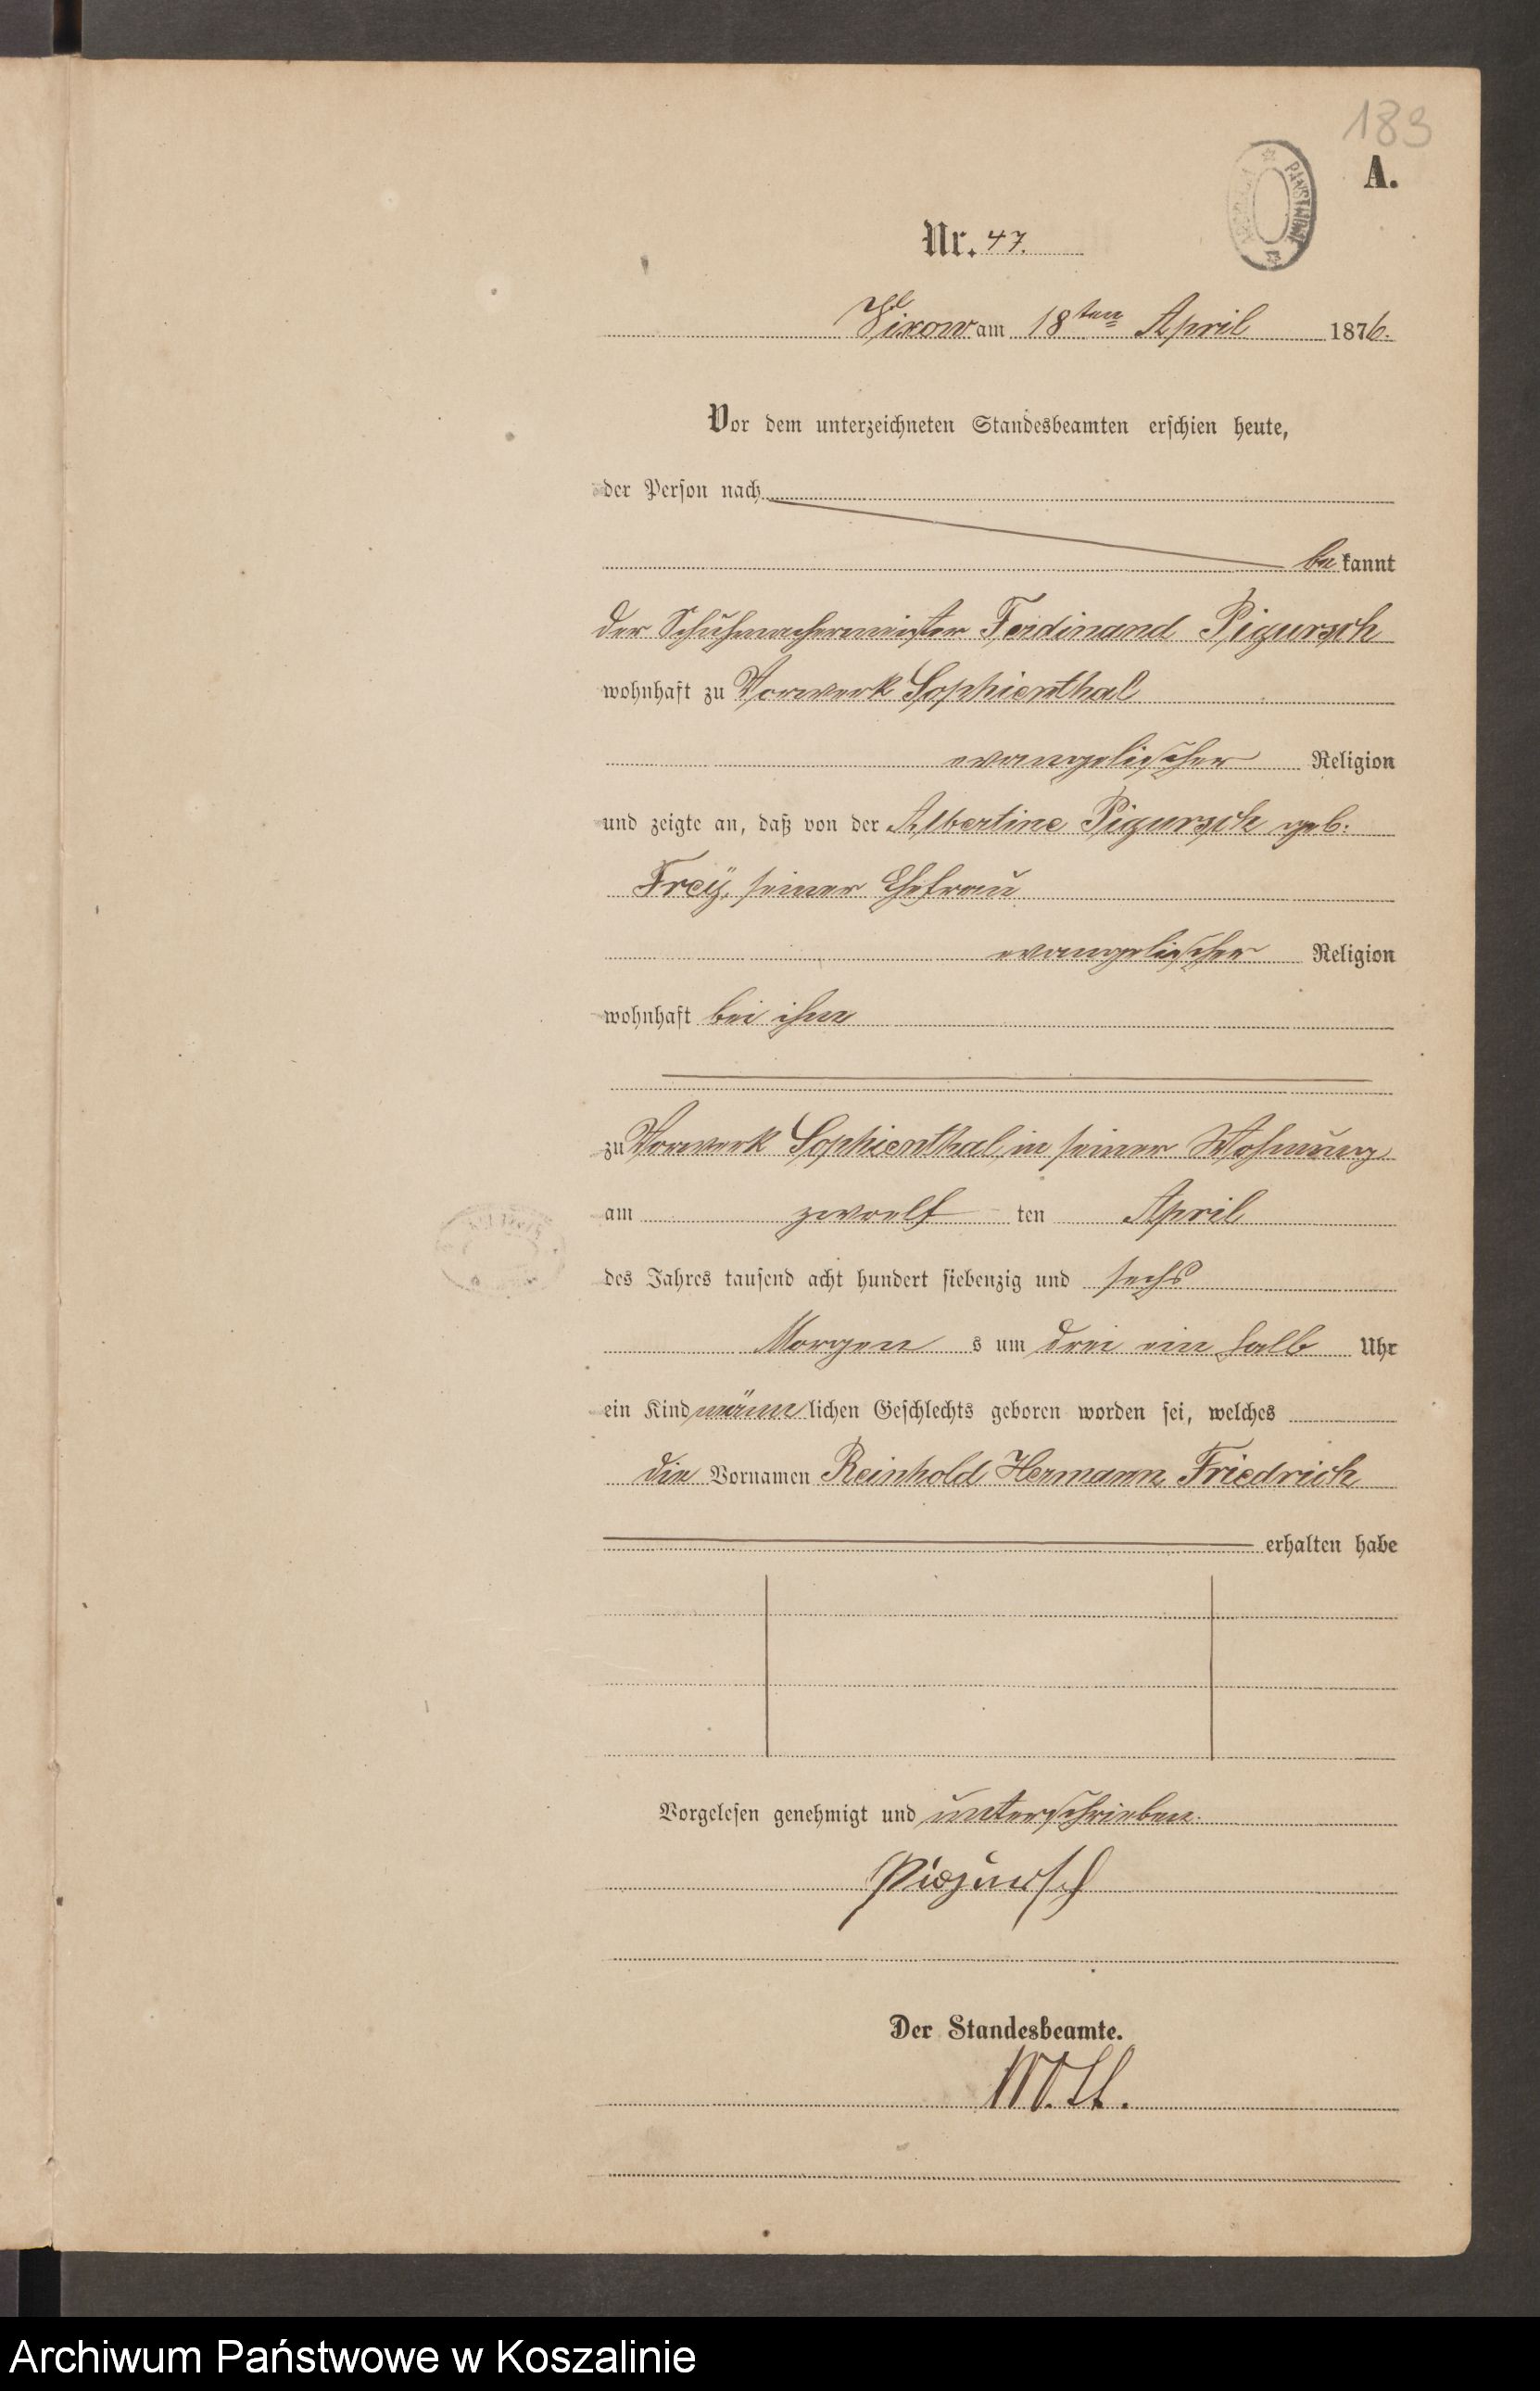 183
A.
PAŃSTWOWE
Nr. 47.
am 18ten April 1876.
Vor dem unterzeichneten Standesbeamten erschien heute,
der Person nach
be kannt
der Schuhmachermeister Ferdinand Pigursch
wohnhaft zu Vorwerk Sophienthal
evangelischer Religion
und zeigte an, daß von der Albertine Pigursch geb:
Freÿ, seiner Ehefrau
evangelischer Religion
wohnhaft bei ihm
zu Vorwerk Sophienthal in seiner Wohnung
am zwoelf ten April
des Jahres tausend acht hundert siebenzig und sechs
Morgen s um drei ein halb Uhr
ein Kind männ lichen Geschlechts geboren worden sei, welches
die Vornamen Reinhold Hermann Friedrich
erhalten habe
Vorgelesen genehmigt und unterschrieben.
Pigursch
Der Standesbeamte.
Archiwum Państwowe w Koszalinie